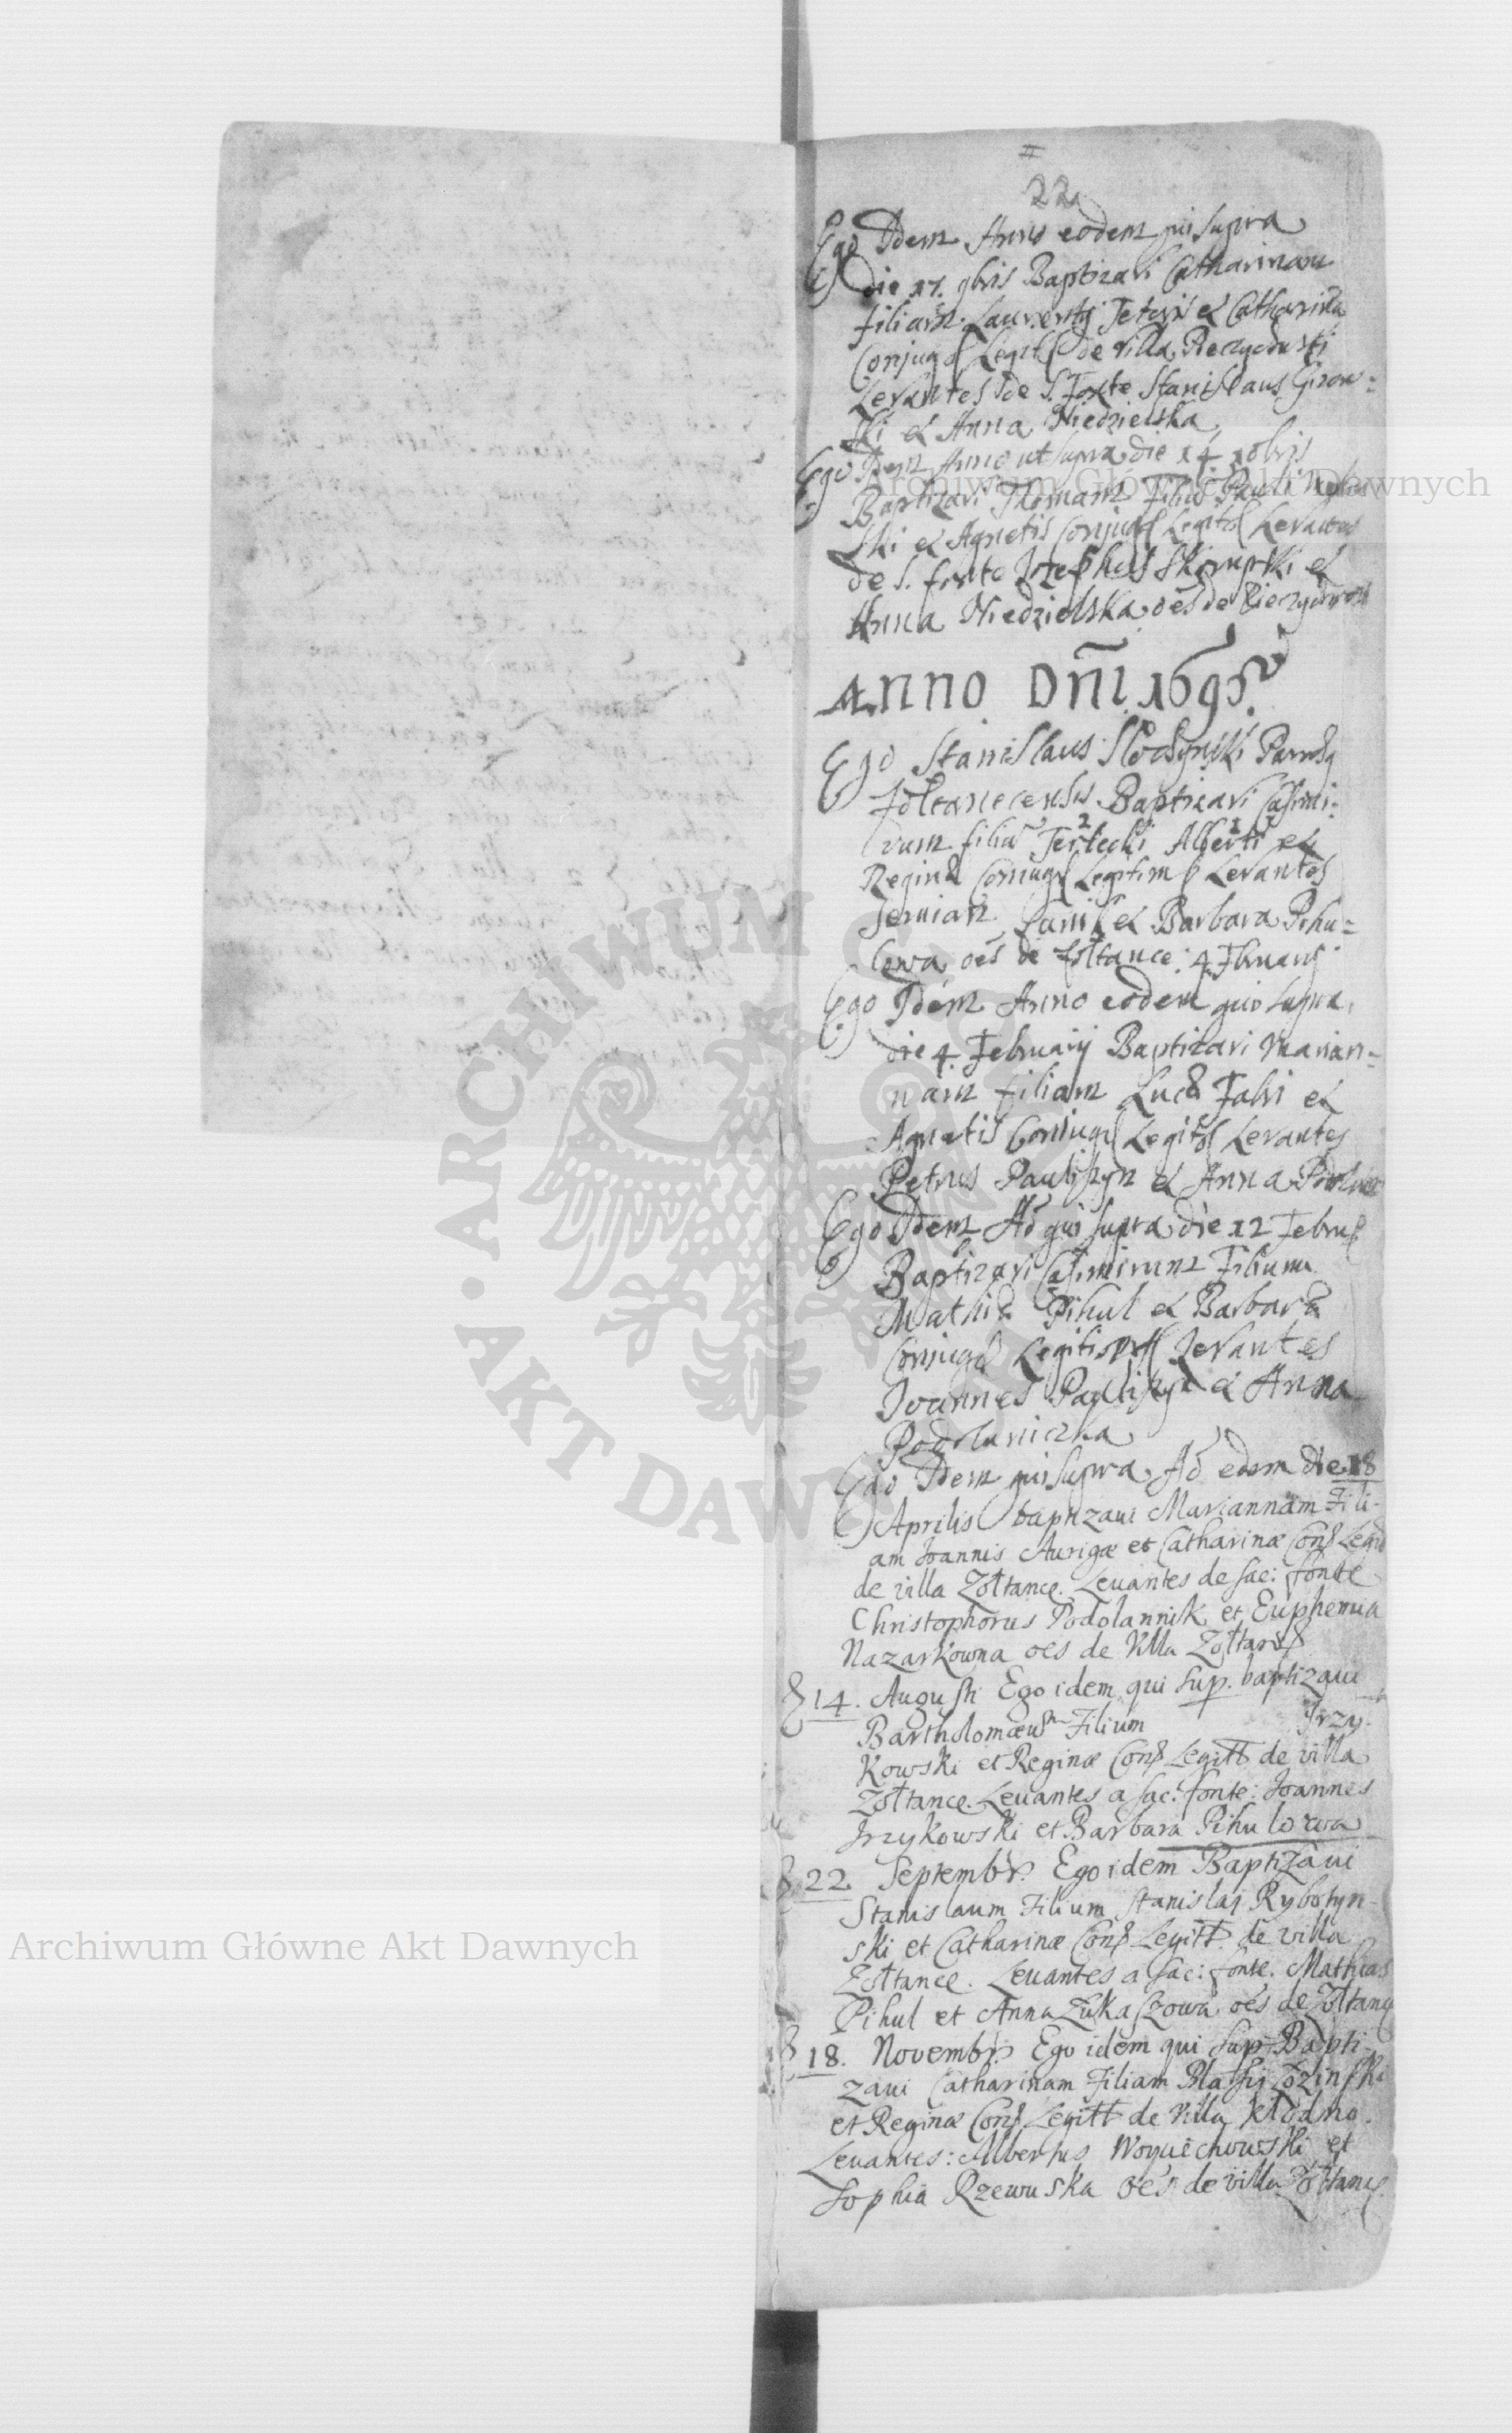 22
Ego Idem Anno eodem qui supra
die 17. 9bris Baptizavi Catharinam
filiam Laurentij et Catharina
Conjug Legit de villa
Levantes de S. Fonte Stanislaus Giron=
ski et Anna Niedzielska
Ego Idem Anno ut supra die 14 10bris
Baptizavi Thomam Filiū Pauli
ski et Agnetis Conjug Legit Levantes
de S. fonte Jozephus Skrupski et
Anna Niedzielska oēs de
Anno Dñi 1695
Ego Stanislaus Paroch
Zołtanecensis Baptizavi Casimi=
rum filiū Tertecki Alberti et
Reginæ Conjug Legitim Levantes
Demian et Barbara Pihu=
lowa oēs de Zołtance 4 Fbruarij
Ego Idem Anno eodem qui supra
die 4 Februarij Baptizavi Marian=
nam filiam Lucæ Fabri et
Agnetis Conjug Legit Levantes
Petrus Pauliszyn et Anna
Ego Idem Aō qui supra die 12 Febru
Baptizavi Casimirum Filium
Mathiæ Pihul et Barbaræ
Conjug Legitim Levantes
Joannes Pauliszyn et Anna
Podolaniczka
Ego Idem qui supra Aō eodem die 18
Aprilis baptizaui Mariannam Fili-
am Joannis Aurigæ et Catharinæ Conj Legit
de villa Zołtance. Leuantes de sac: fonte
Christophorus Podolannik et Euphemia
Nazarkowna oēs de Villa Zołtanc
14. Augusti Ego idem qui sup. baptizaui
Bartholomæum Filium Jrzy-
kowski et Reginæ Conj Legitt de villa
Zołtance. Leuantes a sac: fonte: Joannes
Jrzykowski et Barbara Pihulowa
22 Septembr. Ego idem Baptizaui
Stanislaum Filium Stanislaj Rybotyn-
ski et Catharinæ Conj Legitt de villa
Zołtance. Leuantes a sac: fonte. Mathias
Pihul et Anna Łukaszowa oēs de Zołtanc
18. Novembr Ego idem qui sup Bapti-
zaui Catharinam Filiam Blasij Łozinski
et Reginæ Conj Legitt de Villa Kłodno.
Leuantes: Albertus Woyciechowski et
Sophia Rzewuska oēs de villa Zołtanc
Archiwum Główne Akt Dawnych
Archiwum Główne Akt Dawnych
ARCHIWUM GŁÓWNE AKT DAWNYCH